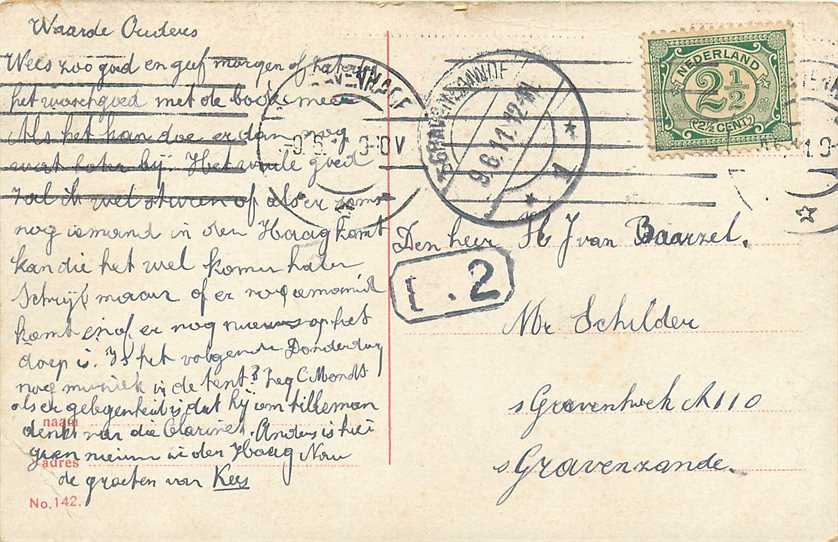 Waarde Ouders
Wees zoo goed en geef morgen of
het waschgoed met de bode mee
Als het kan doe er dan nog
wat later bij. Het vuile goed
zal ik wel sturen of als er soms
nog iemand in den Haag komt
kan die het wel komen halen
Schrijf maar of er nog iemand
komt en of er nog nieuws op het
dorp is. Is het volgende Donderdag
nog muziek in de tent? Zeg C. Mondt
als er gelegenheid is dat hij om tilleman
denkt van die Clarinet. Anders is hier
geen nieuws in den Haag Nou
de groeten van Kees
naam
adres
No. 142.
'S GRAVENZANDE
9.6.11.12-1N.
1
NEDERLAND
2½
(2½ CENT)
Den heer H. J van Baarzel.
.2
Mr Schilder
s Gravenhoek A110
s Gravenzande.